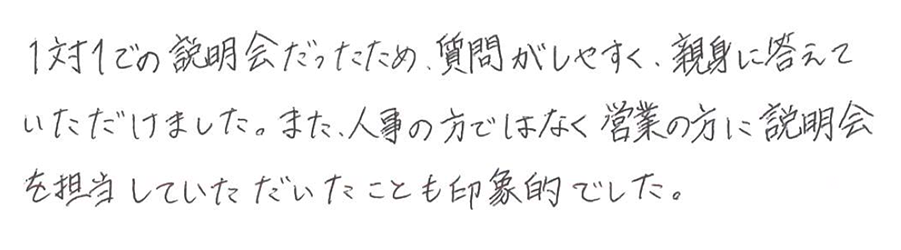 1対1での説明会だったため、質問がしやすく、親身に答えて
いただけました。また、人事の方ではなく営業の方に説明会
を担当していただいたことも印象的でした。